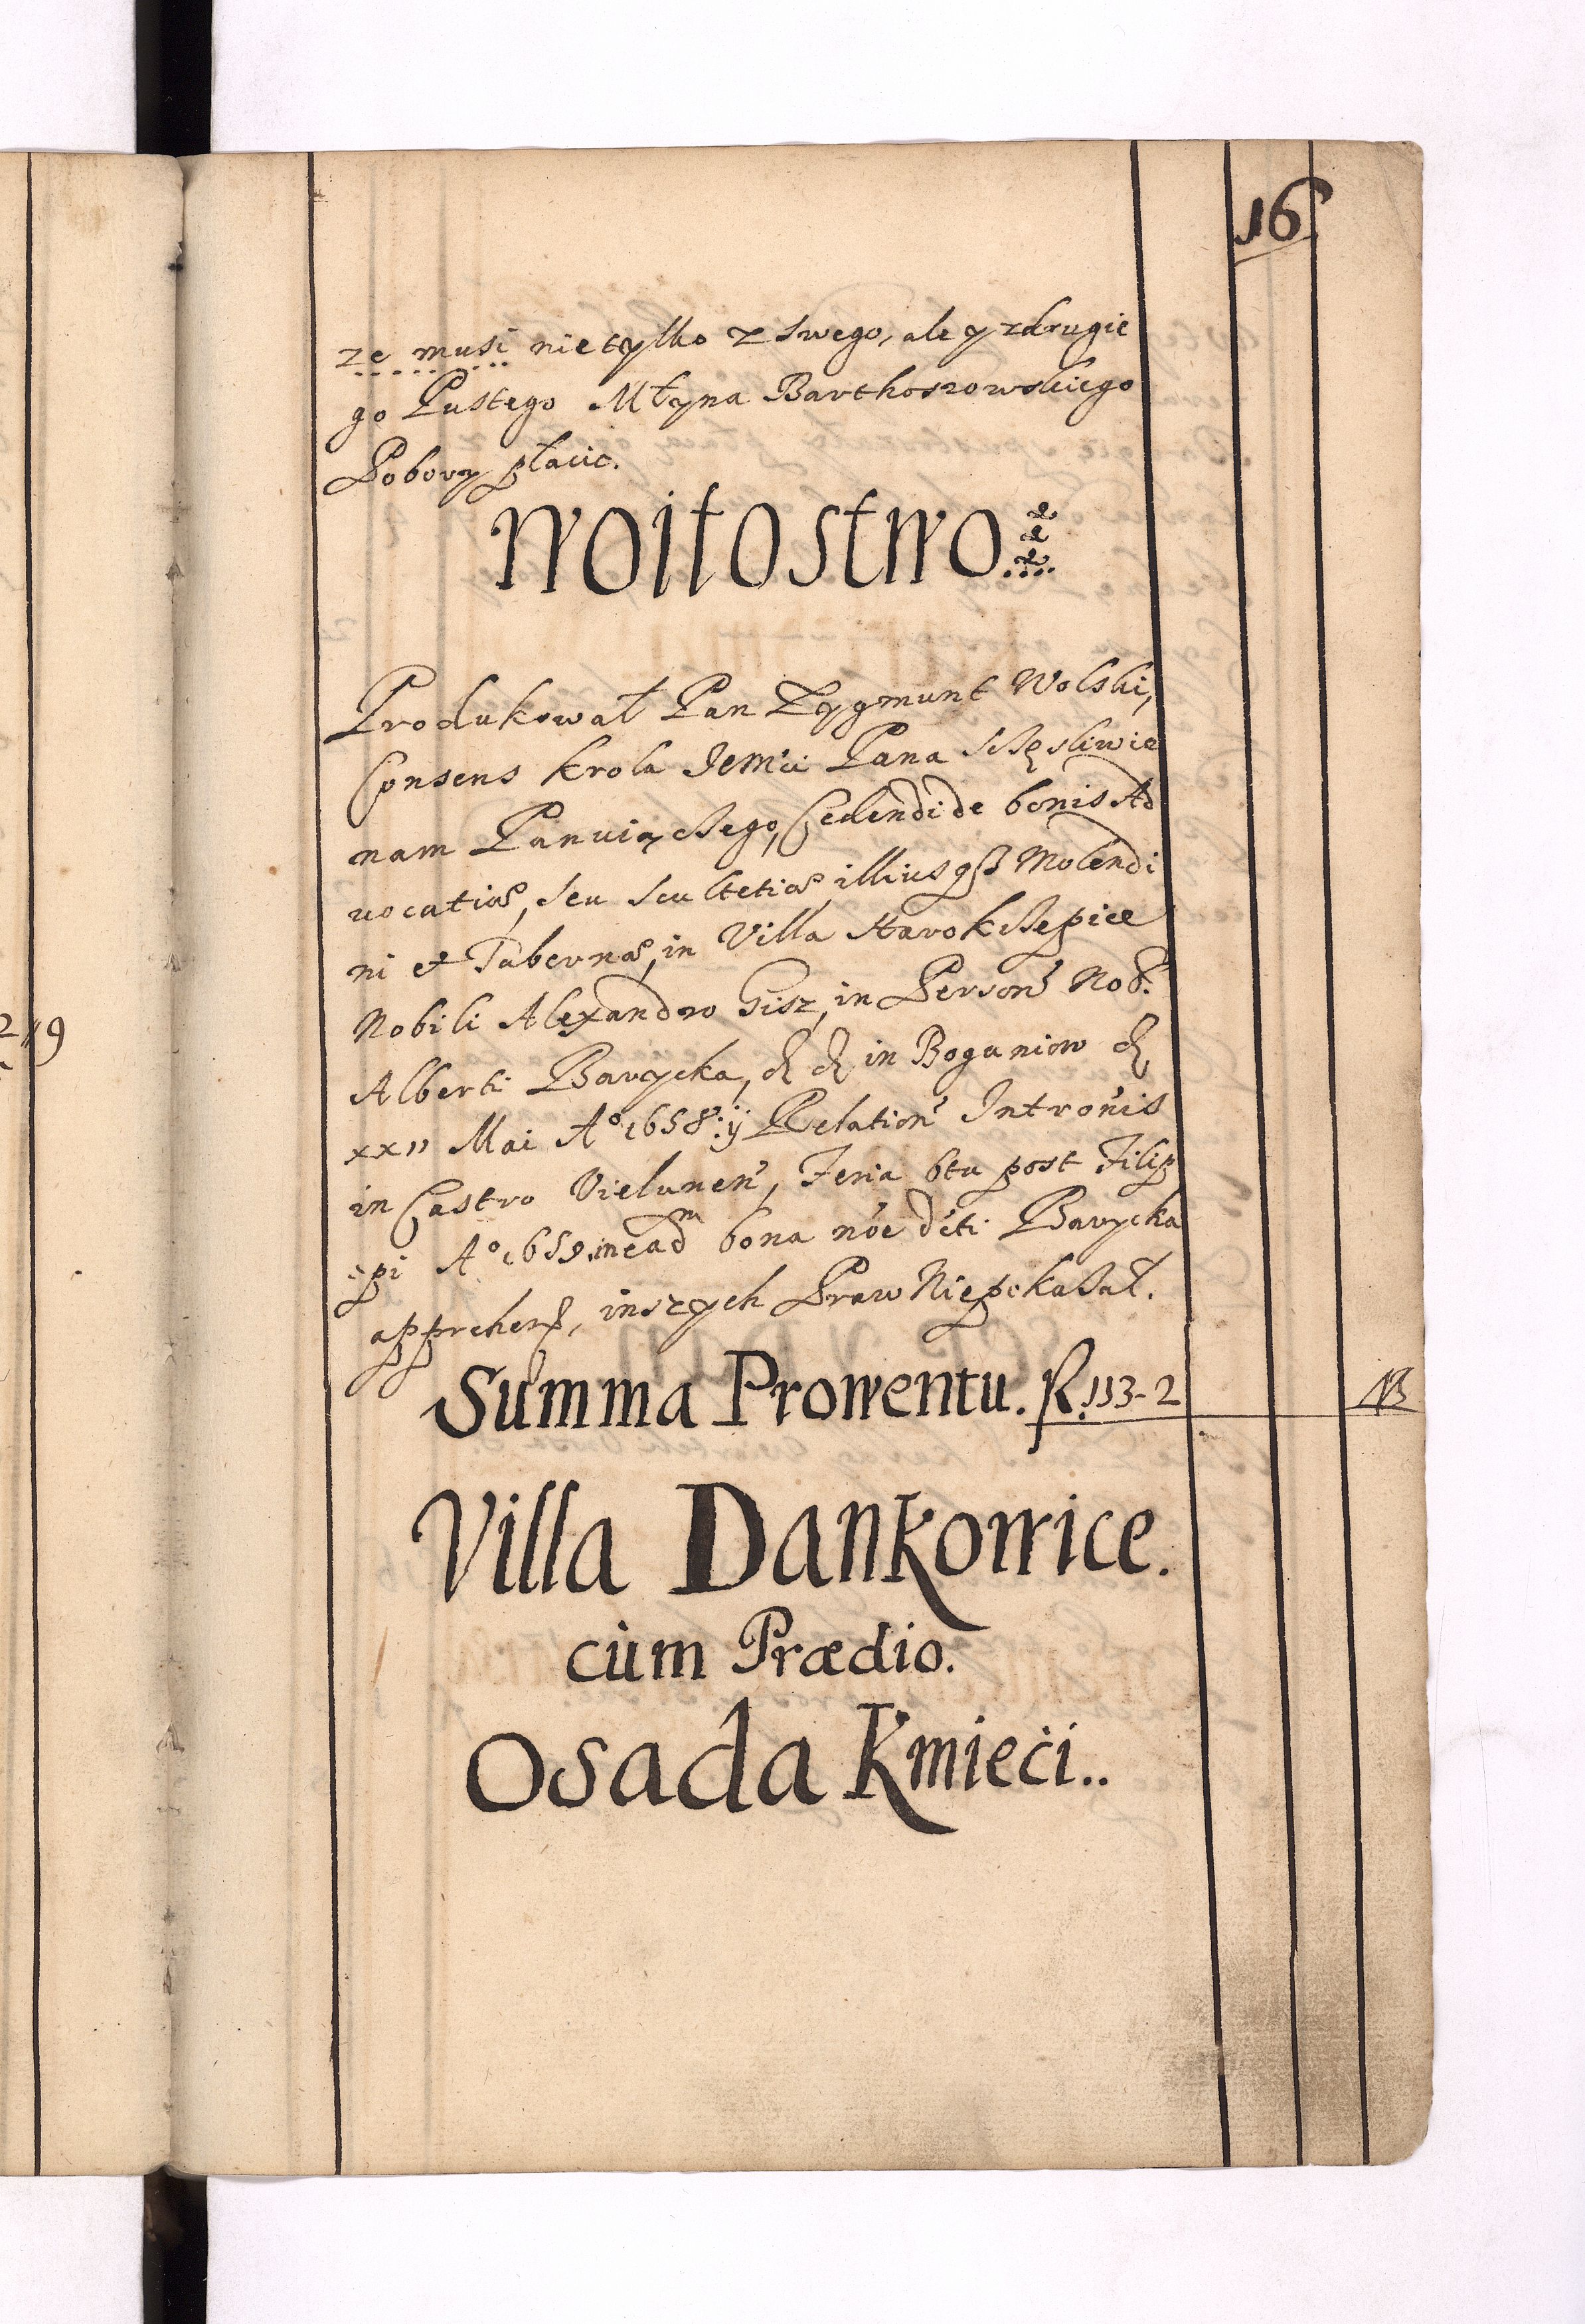 16
ze musi nie tylko z swego, ale y zdrugie
go Pustego Młyna Barthoszowskiego
Pobory płacic.
Woitostwo
Produkował Pan Zygmunt Wolski,
Consens krola Jemci Pana sczęsliwie
nam Panuiączego, Cedendi de bonis Ad
uocatiæ, seu scultetiæ, illiusqß Molendi
ni et Tabernæ, in Villa Starokczepice
Nobili Alexandro Gisz, in Person Nob:
Alberti Barycka, in Boguniow
Mai Aº 1658: ÿ Relation Intronis
in Castro Vielunen, Feria 6ta post Filip
pi Aº 1659. in ead bona nőe dcti Barycka
apprehens, inszych Praw Niepokazał.
Summa Prowentu. f. 113-2
NB
Villa Dankowice.
cum Prædio.
Osada Kmieci..
2 19